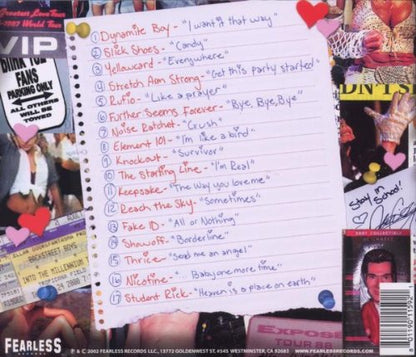 Greatest Love Tour
1987 World Tour
VIP
BLINK 182
FANS
PARKING ONLY
ALL OTHERS
WILL BE
TOWED
① Dynamite Boy - "I want it that way"
② Slick Shoes - "Candy"
③ Yellowcard - "Everywhere"
④ Stretch Arm Strong - "Get this party started"
⑤ Rufio - "Like a prayer"
⑥ Further Seems Forever - "Bye, Bye, Bye"
⑦ Noise Ratchet - "Crush"
⑧ Element 101 - "I'm like a bird"
⑨ Knockout - "Survivor"
⑩ The Starting Line - "I'm Real"
⑪ Keepsake - "The Way you love me"
⑫ Reach the Sky - "Sometimes"
⑬ Fake ID - "All or Nothing"
⑭ Showoff - "Borderline"
⑮ Thrice - "Send me an angel"
⑯ Nicotine - "... Baby one more time"
⑰ Student Rick - "Heaven is a place on earth"
BACKSTREET BOYS
INTO THE MILLENNIUM
Stay in
School!
BABY COLLECTIBLES
EXPOSE
TOUR 88
FEARLESS
RECORDS
℗ & © 2002 FEARLESS RECORDS LLC., 13772 GOLDENWEST ST. #545 WESTMINSTER, CA 92683
WWW.FEARLESSRECORDS.COM